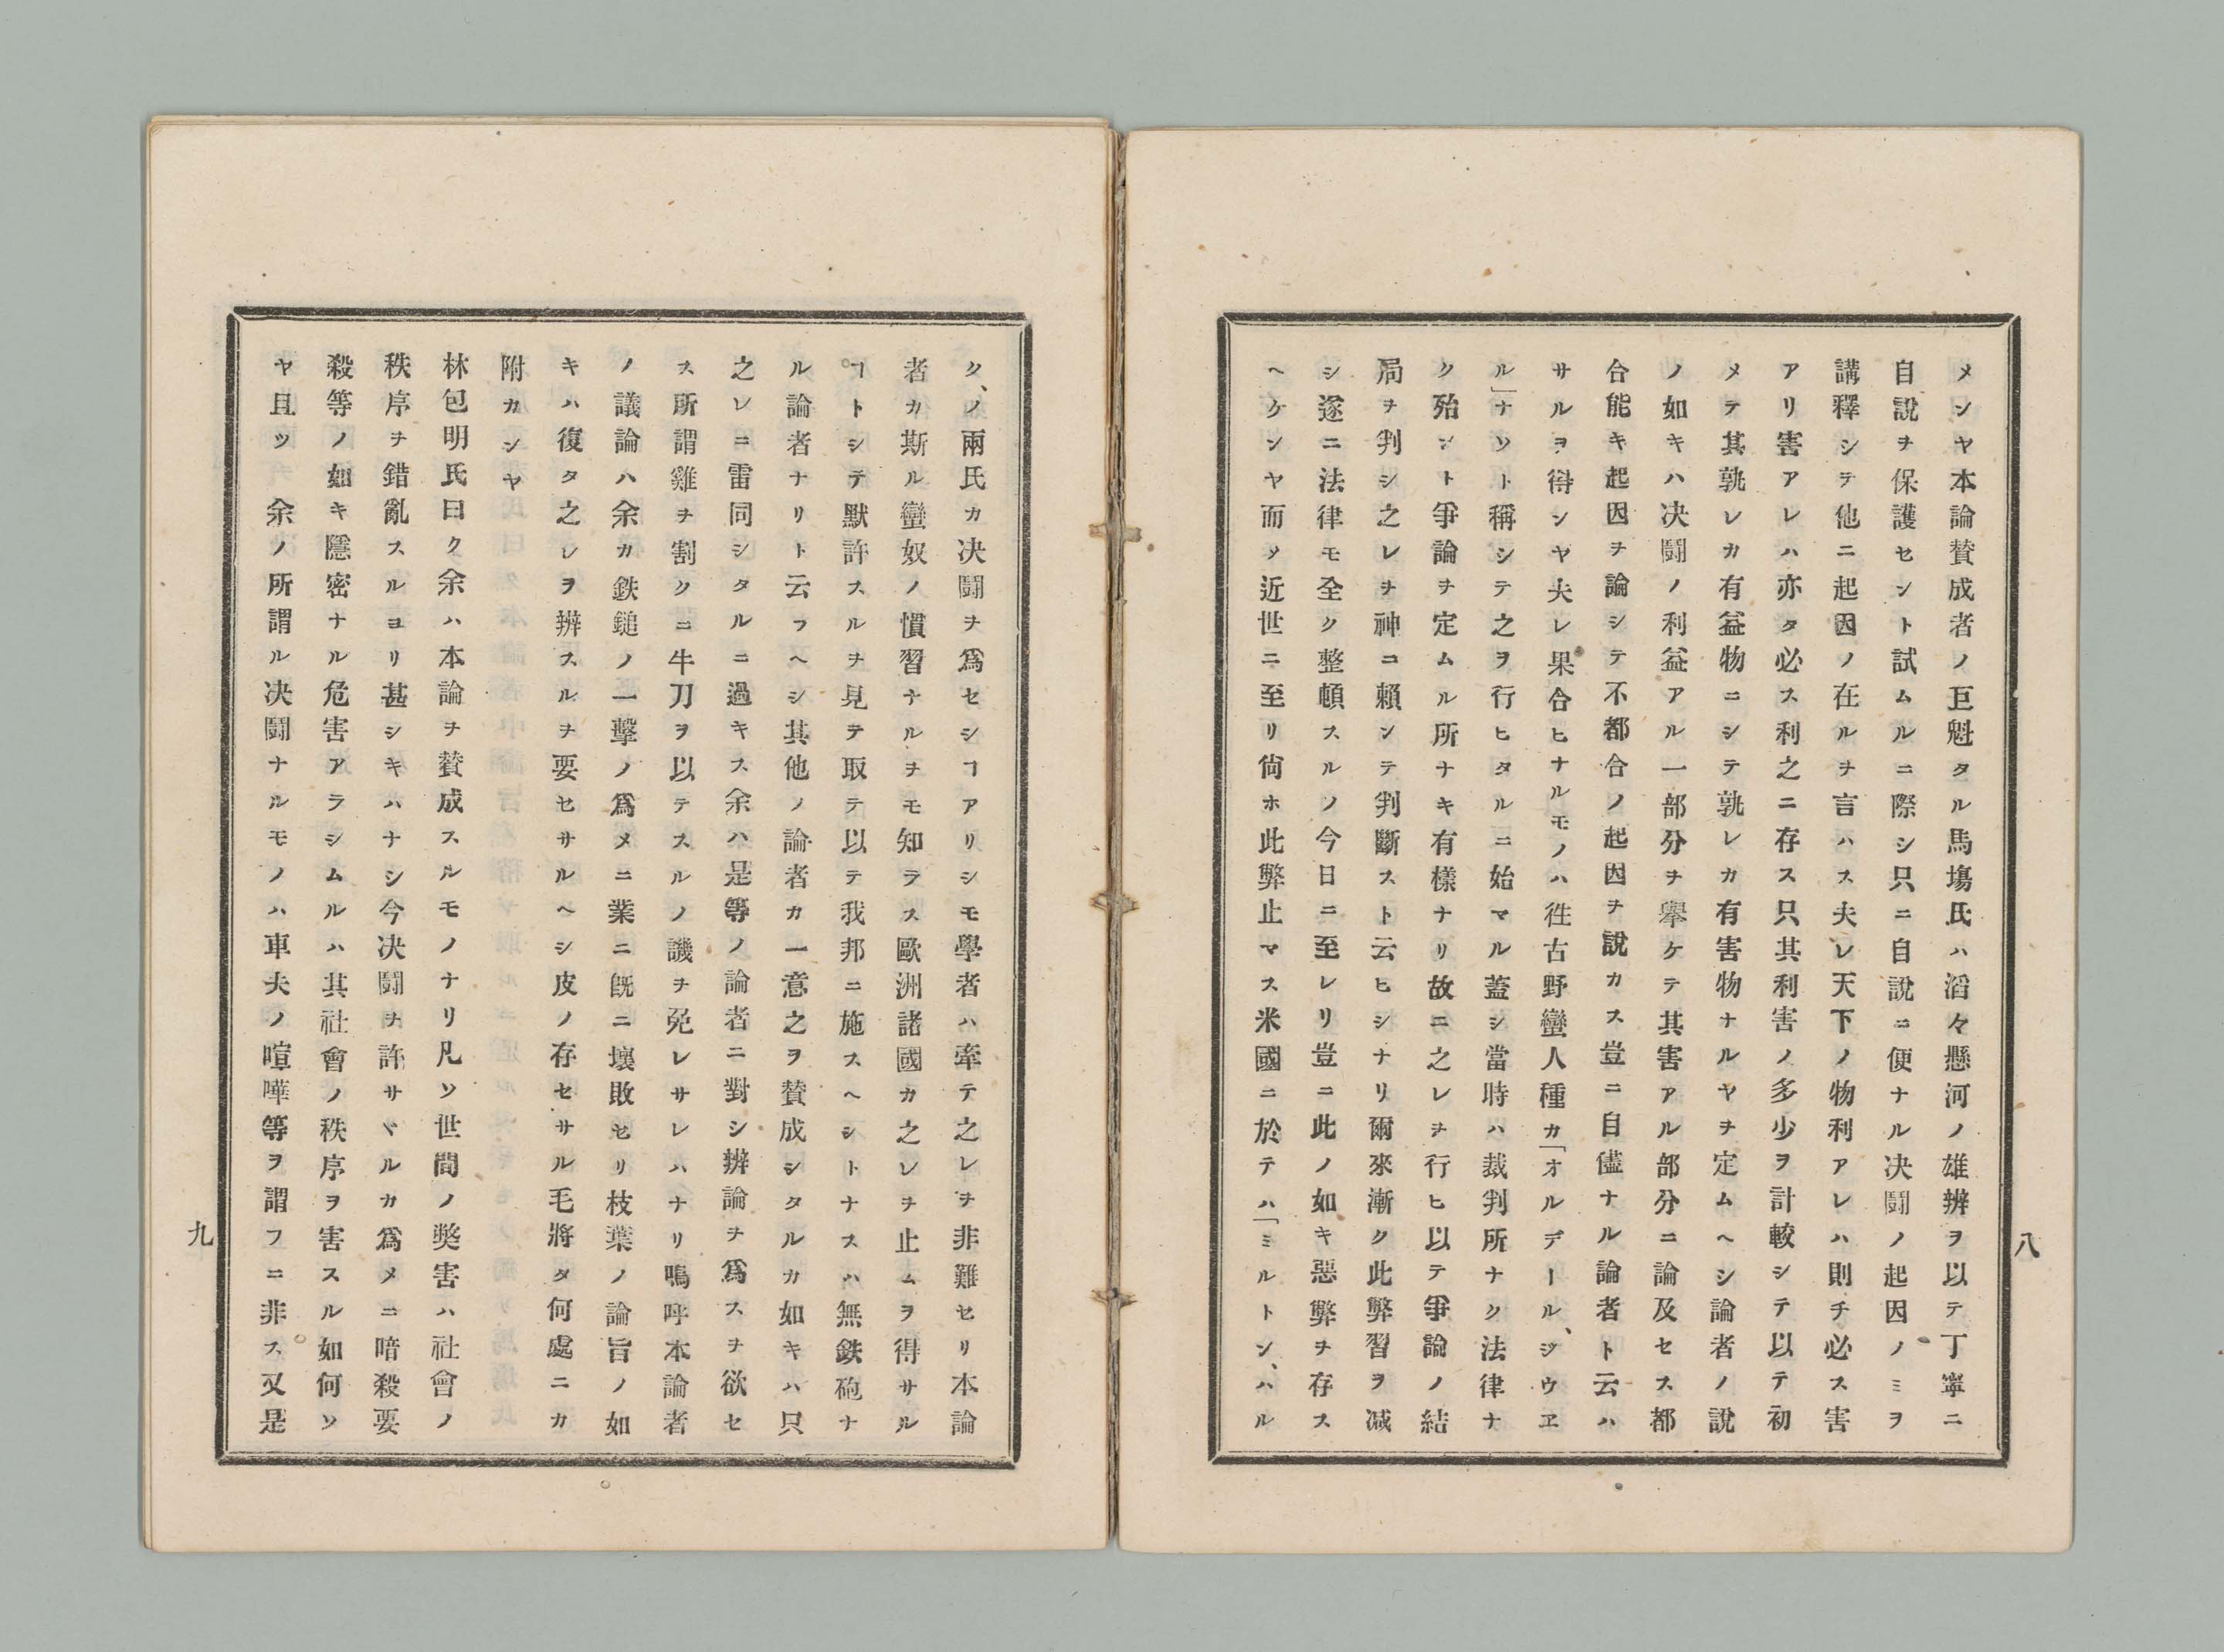 メンヤ本論賛成者ノ巨魁タル馬塲氏ハ滔々懸河ノ雄辨ヲ以テ丁寧ニ
自説ヲ保護セント試ムルニ際シ只ニ自説ニ便ナル决闘ノ起因ノミヲ
講釋シテ他ニ起因ノ在ルヲ言ハス夫レ天下ノ物利アレハ則チ必ス害
アリ害アレハ亦タ必ス利之ニ存ス只其利害ノ多少ヲ計較シテ以テ初
メテ其孰レカ有益物ニシテ孰レカ有害物ナルヤヲ定ムヘシ論者ノ説
ノ如キハ决闘ノ利益アル一部分ヲ舉ケテ其害アル部分ニ論及セス都
合能キ起因ヲ論シテ不都合ノ起因ヲ説カス豈ニ自儘ナル論者ト云ハ
サルヲ得ンヤ夫レ果合ヒナルモノハ徃古野蠻人種カ「オルデール、ジウヱ
ル」ナソト稱シテ之ヲ行ヒタルニ始マル蓋シ當時ハ裁判所ナク法律ナ
ク殆ント爭論ヲ定ムル所ナキ有樣ナリ故ニ之レヲ行ヒ以テ爭論ノ結
局ヲ判シ之レヲ神ニ賴ンテ判斷スト云ヒシナリ爾來漸ク此弊習ヲ减
シ遂ニ法律モ全ク整頓スルノ今日ニ至レリ豈ニ此ノ如キ惡弊ヲ存ス
ヘケンヤ而ソ近世ニ至リ尙ホ此弊止マス米國ニ於テハ「ミルトン、ハル
八
ク、ノ兩氏カ决闘ヲ爲セシヿアリシモ學者ハ牽テ之レヲ非難セリ本論
者カ斯ル蠻奴ノ慣習ナルヲモ知ラス歐洲諸國カ之レヲ止ムヲ得サル
ヿトシテ默許スルヲ見テ取テ以テ我邦ニ施スヘシトナスハ無鉄砲ナ
ル論者ナリト云フヘシ其他ノ論者カ一意之ヲ賛成シタルカ如キハ只
之レニ雷同シタルニ過キス余ハ是等ノ論者ニ對シ辨論ヲ爲スヲ欲セ
ス所謂雞ヲ割クニ牛刀ヲ以テスルノ譏ヲ免レサレハナリ嗚呼本論者
ノ議論ハ余カ鉄鎚ノ一擊ノ爲メニ業ニ既ニ壞敗セリ枝葉ノ論旨ノ如
キハ復タ之レヲ辨スルヲ要セサルヘシ皮ノ存セサル毛將タ何處ニカ
附カンヤ
林包明氏曰ク余ハ本論ヲ賛成スルモノナリ凡ソ世間ノ奬害ハ社會ノ
秩序ヲ錯亂スルヨリ甚シキハナシ今决闘ヲ許サヾルカ爲メニ暗殺要
殺等ノ如キ隱密ナル危害アラシムルハ其社會ノ秩序ヲ害スル如何ソ
ヤ且ツ余ノ所謂ル决闘ナルモノハ車夫ノ喧嘩等ヲ謂フニ非ス又是
九